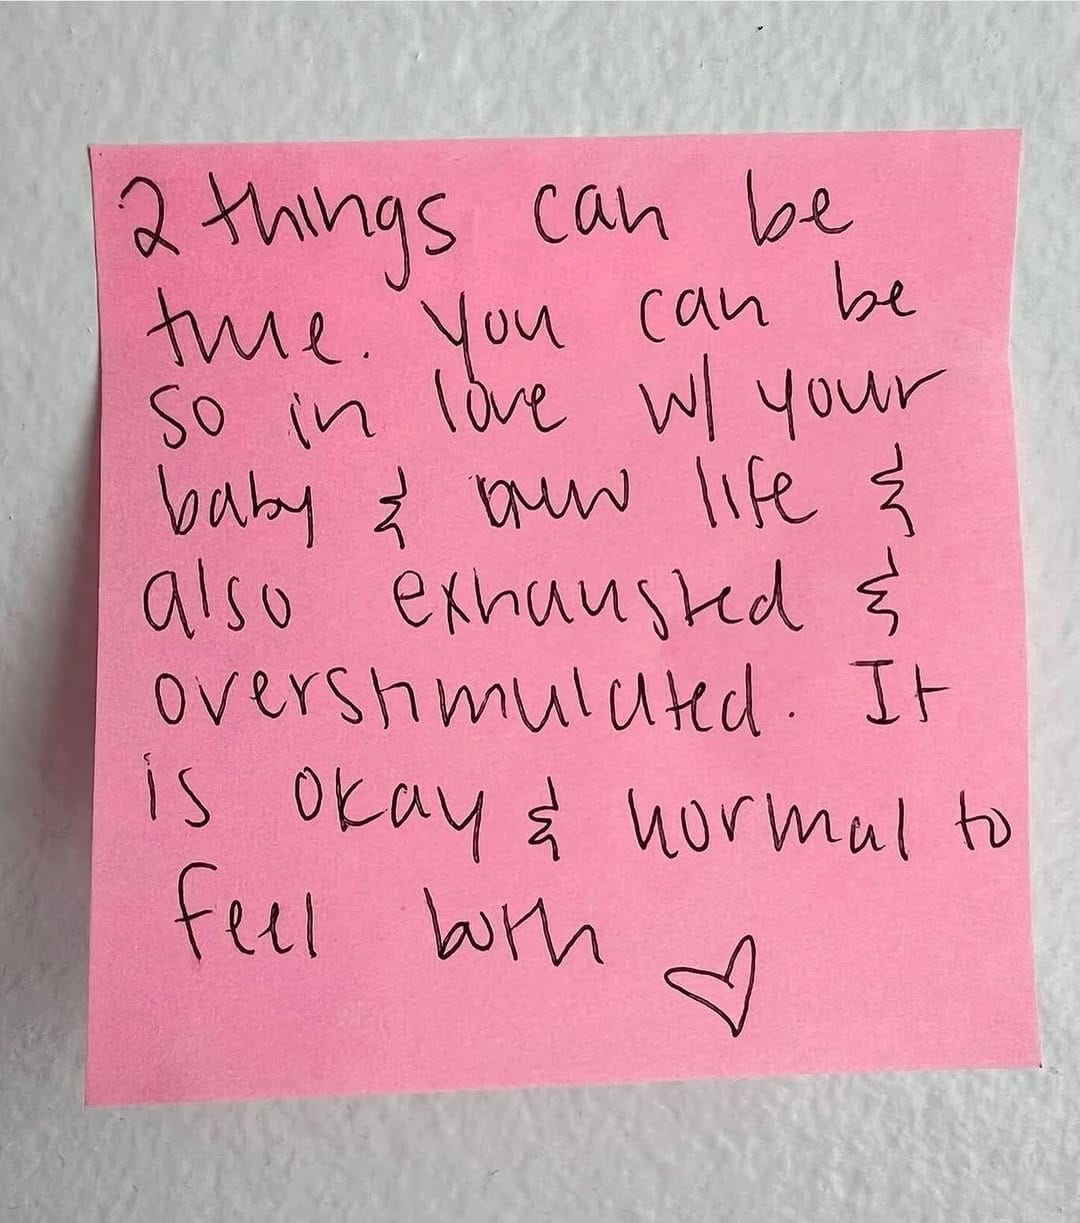 2 things can be
true. You can be
so in love w/ your
baby & new life &
also exhausted &
overstimulated. It
is okay & normal to
feel both